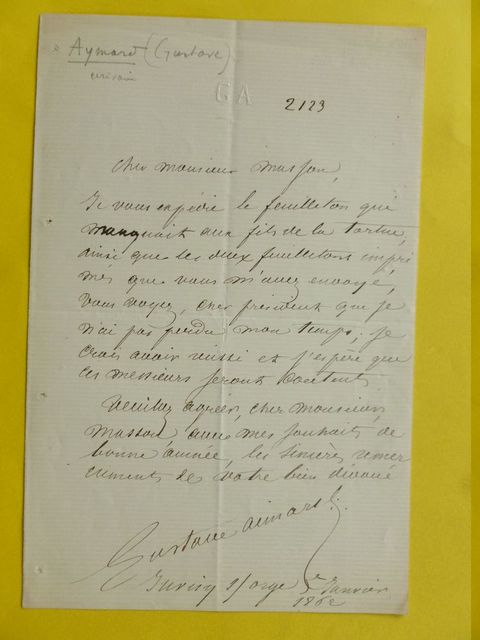 Aymard (Gustave)
écrivain
GA
2123
Cher monsieur Masson,
Je vous expédie le feuilleton qui
manquait aux fils de la tortue,
ainsi que les deux feuilletons impri
més que vous m'avez envoyé,
Vous voyez, cher président que je
n'ai pas perdu mon temps; je
crois avoir réussi et j'espère que
ces messieurs seront contents.
Veuillez agréer, cher monsieur,
Masson avec mes souhaits de
bonne année, les sincères remer
ciements de votre bien dévoué
Gustave Aimard
Juvisy s/ orge Janvier
1862